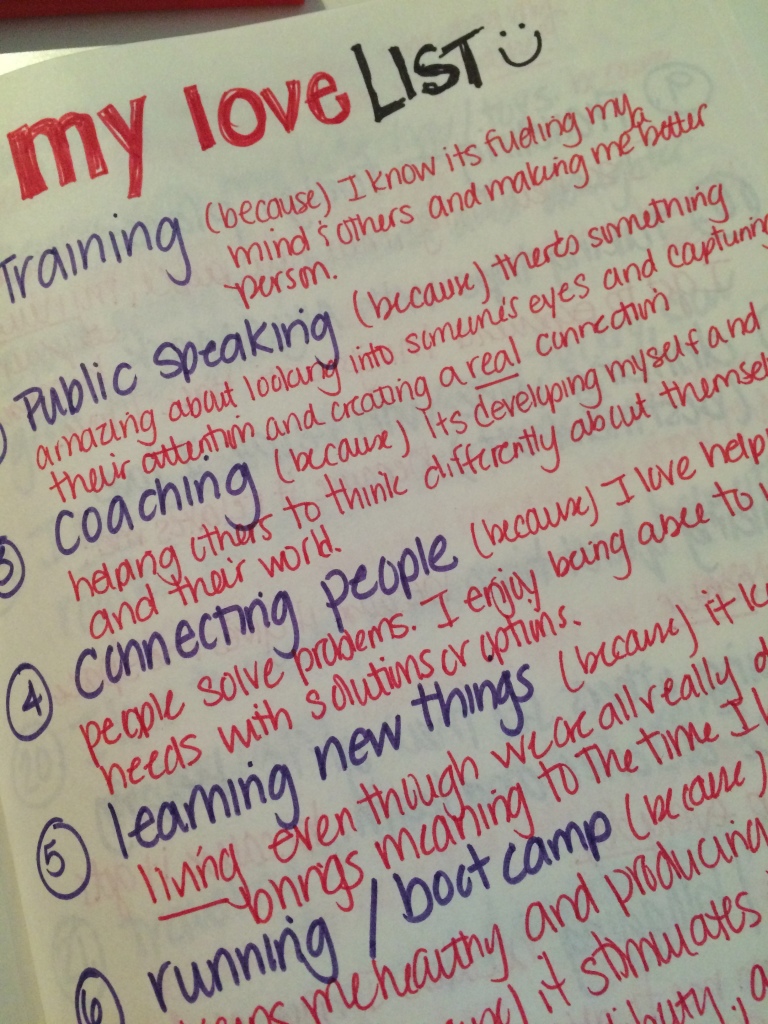 my love LIST
Training (because) I know its fueling my
mind & others and making me a better
person.
Public speaking (because) there's something
amazing about looking into someone's eyes and capturing
their attention and creating a real connection
3 Coaching (because) Its developing myself and
helping others to think differently about
and their world.
4 connecting people (because) I love
people solve problems. I enjoy being able to
needs with solutions or options.
5 learning new things (because) it
living even though we are all really
brings meaning to the time I
6 running / boot camp (because)
me healthy and producing
it stimulates